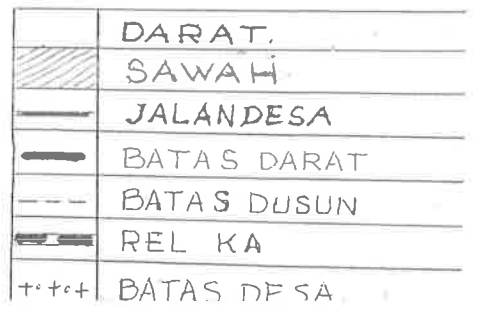 DARAT.
SAWAH
JALANDESA
BATAS DARAT
BATAS DUSUN
REL KA
BATAS DESA